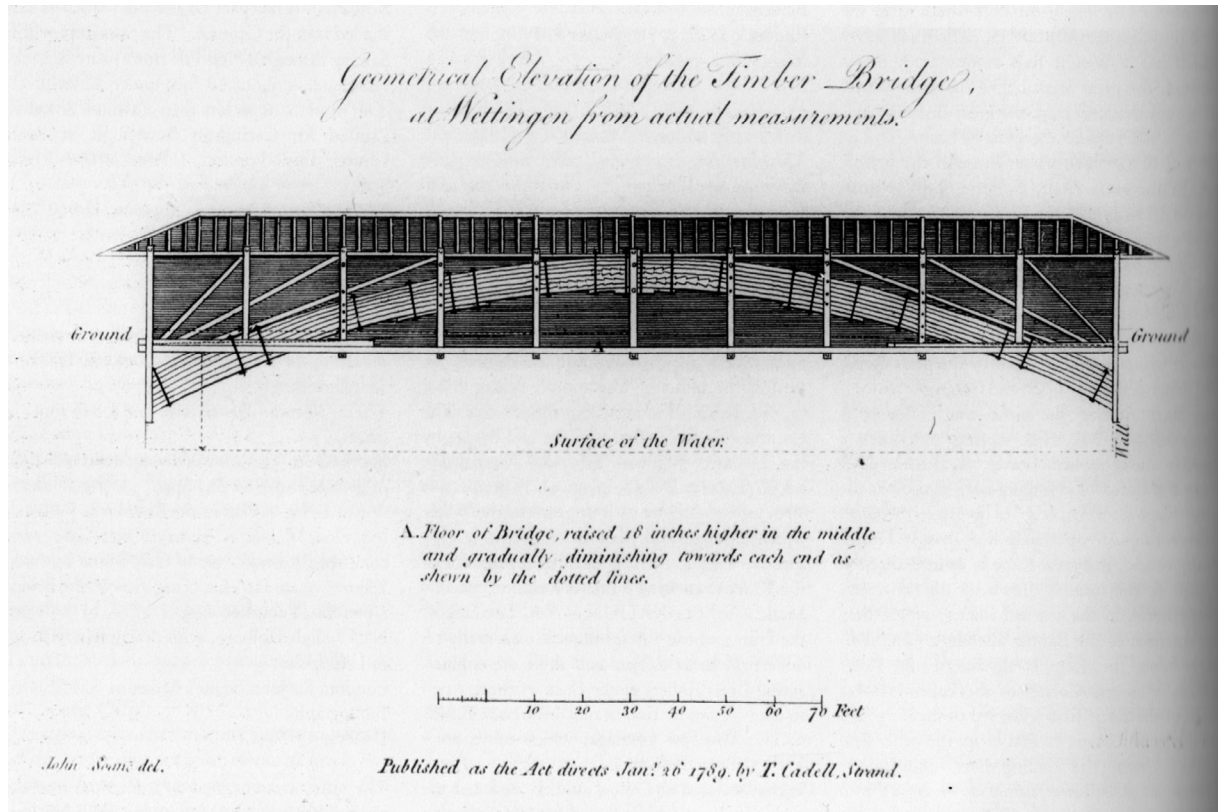 Geometrical Elevation of the Timber Bridge,
at Wettingen from actual measurements.
Ground
Ground
A
Surface of the Water.
Wall
A. Floor of Bridge, raised 18 inches higher in the middle
and gradually diminishing towards each end as
shewn by the dotted lines.
10 20 30 40 50 60 70 Feet
John Soane del.
Published as the Act directs Jan.y 26 1789. by T. Cadell, Strand.